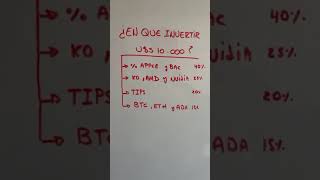 ¿EN QUE INVERTIR
U$S 10.000?
% APPLE y BAC 40%
KO, AMD y Nvidia 25%
TIPS 20%
BTC, ETH y ADA 15%